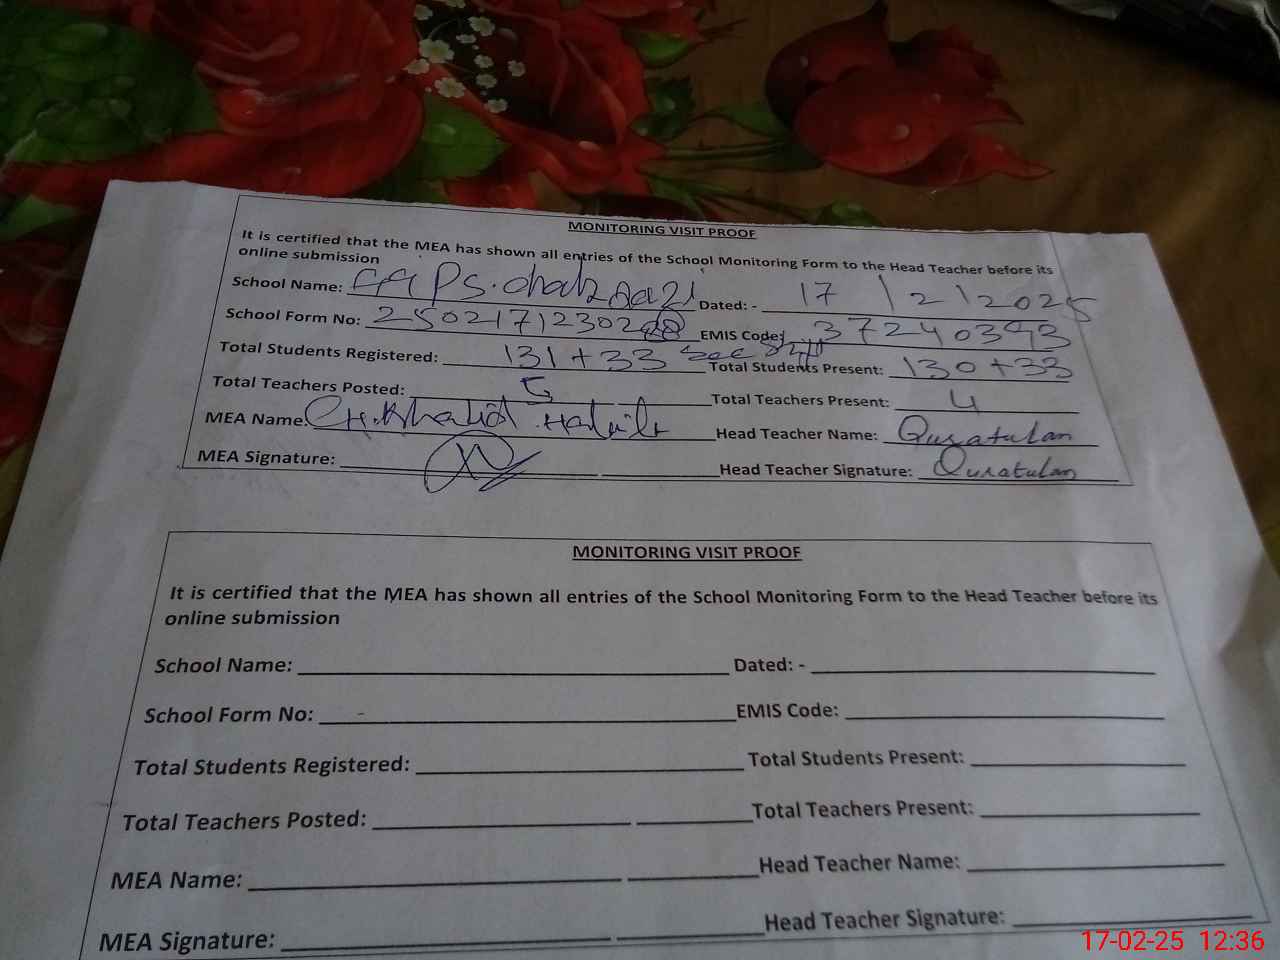 MONITORING VISIT PROOF
It is certified that the MEA has shown all entries of the School Monitoring Form to the Head Teacher before its
online submission
School Name: GGPS. Dated: - 17 \ 2 \ 2025
School Form No: EMIS Code: 37240393
Total Students Registered: 131 + 33 Total Students Present: 130 + 33
Total Teachers Posted: 5 Total Teachers Present: 4
MEA Name: CH. Khalid Head Teacher Name: Quratulan
MEA Signature: Head Teacher Signature: Quratulan
MONITORING VISIT PROOF
It is certified that the MEA has shown all entries of the School Monitoring Form to the Head Teacher before its
online submission
School Name: Dated: -
School Form No: EMIS Code:
Total Students Registered: Total Students Present:
Total Teachers Posted: Total Teachers Present:
MEA Name: Head Teacher Name:
MEA Signature: Head Teacher Signature:
17-02-25 12:36